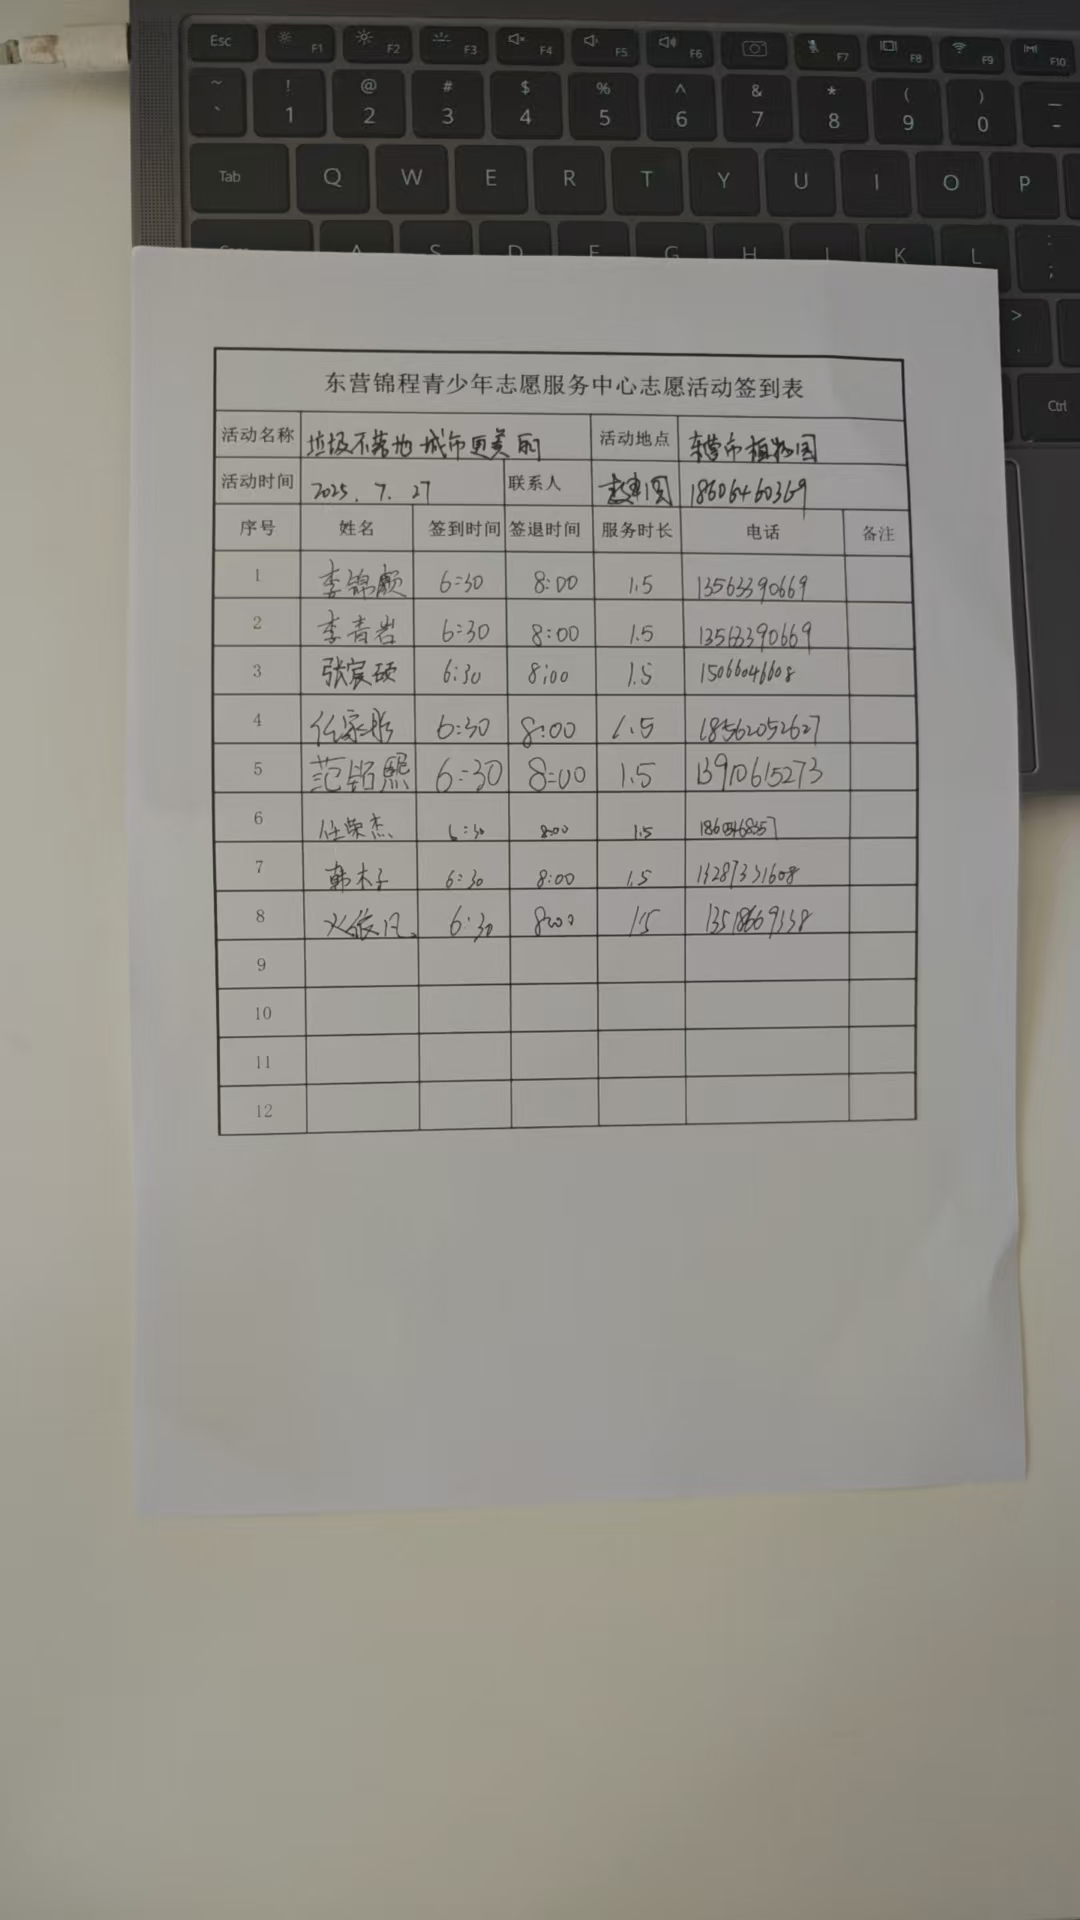 Esc F1 F2 F3 F4 F5 F6 F7 F8 F9 F10
~ ` ! 1 @ 2 # 3 $ 4 % 5 ^ 6 & 7 * 8 ( 9 ) 0 — -
Tab Q W E R T Y U I O P
A S D F G H J K L : ;
> .
Ctrl
东营锦程青少年志愿服务中心志愿活动签到表
活动名称 垃圾不落地 城市更美丽 活动地点 东营市植物园
活动时间 2025. 7. 27 联系人 18606460369
序号 姓名 签到时间 签退时间 服务时长 电话 备注
1 李锦颢 6:30 8:00 1.5 13563390669
2 李青岩 6:30 8:00 1.5 13563390669
3 张宸硕 6:30 8:00 1.5 15066046608
4 任家彤 6:30 8:00 1.5 18562052627
5 范铭熙 6:30 8:00 1.5 13910615273
6 任荣杰 6:30 8:00 1.5
7 韩木子 6:30 8:00 1.5 13287331608
8 6:30 8:00 1.5 13518669338
9
10
11
12